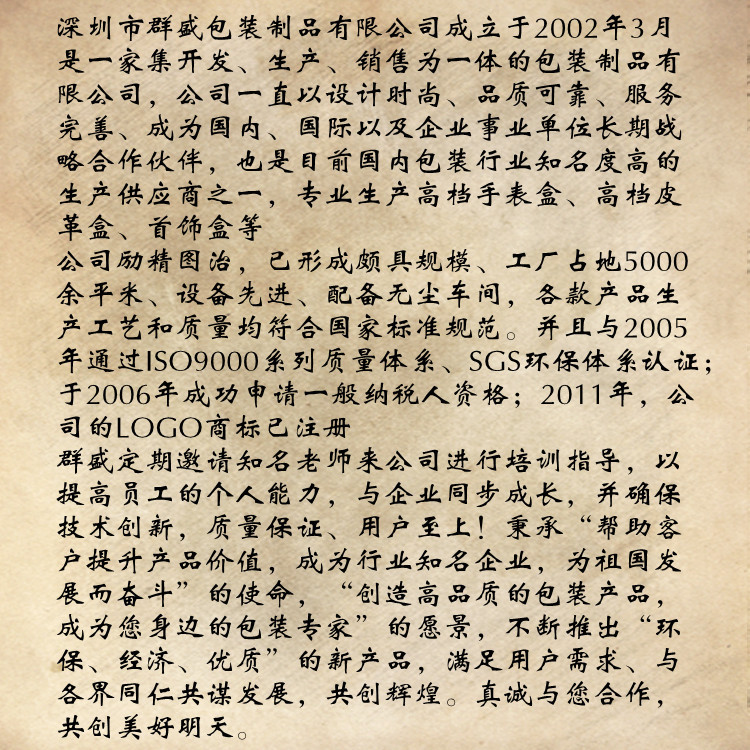 深圳市群盛包装制品有限公司成立于2002年3月
是一家集开发、生产、销售为一体的包装制品有
限公司，公司一直以设计时尚、品质可靠、服务
完善、成为国内、国际以及企业事业单位长期战
略合作伙伴，也是目前国内包装行业知名度高的
生产供应商之一，专业生产高档手表盒、高档皮
革盒、首饰盒等
公司励精图治，已形成颇具规模、工厂占地5000
余平米、设备先进、配备无尘车间，各款产品生
产工艺和质量均符合国家标准规范。并且与2005
年通过ISO9000系列质量体系、SGS环保体系认证；
于2006年成功申请一般纳税人资格；2011年，公
司的LOGO商标已注册
群盛定期邀请知名老师来公司进行培训指导，以
提高员工的个人能力，与企业同步成长，并确保
技术创新，质量保证、用户至上！秉承“帮助客
户提升产品价值，成为行业知名企业，为祖国发
展而奋斗”的使命，“创造高品质的包装产品，
成为您身边的包装专家”的愿景，不断推出“环
保、经济、优质”的新产品，满足用户需求、与
各界同仁共谋发展，共创辉煌。真诚与您合作，
共创美好明天。